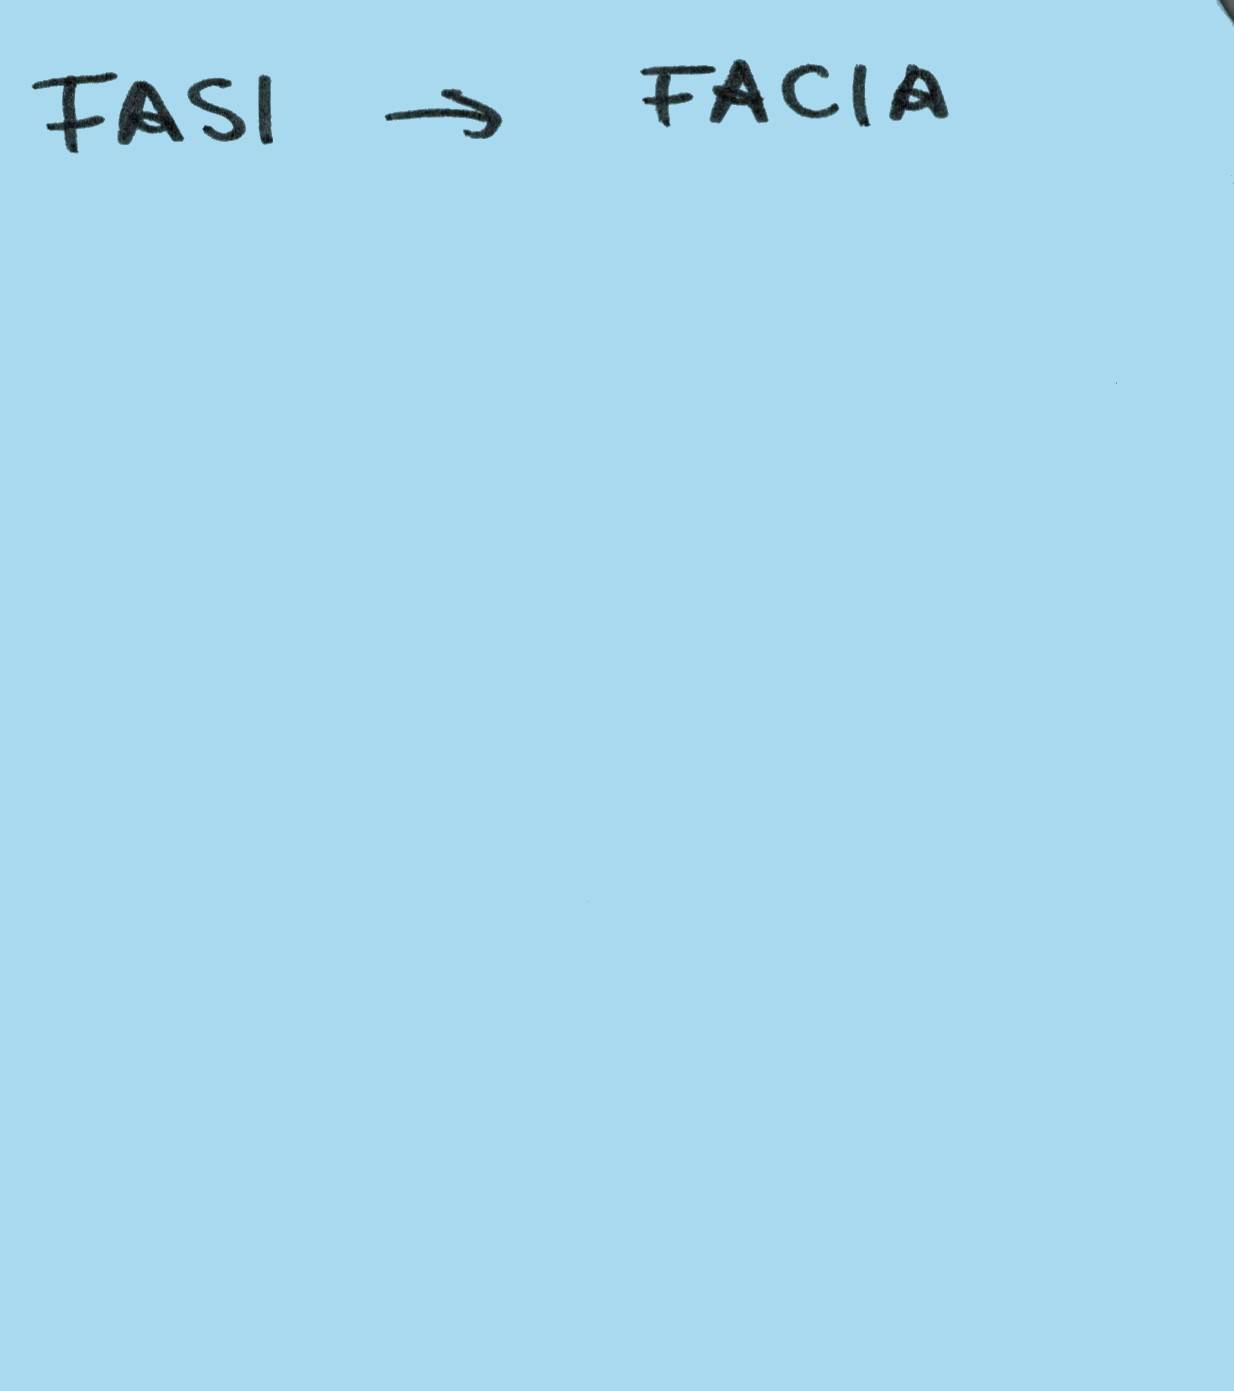 FASI → FACIA